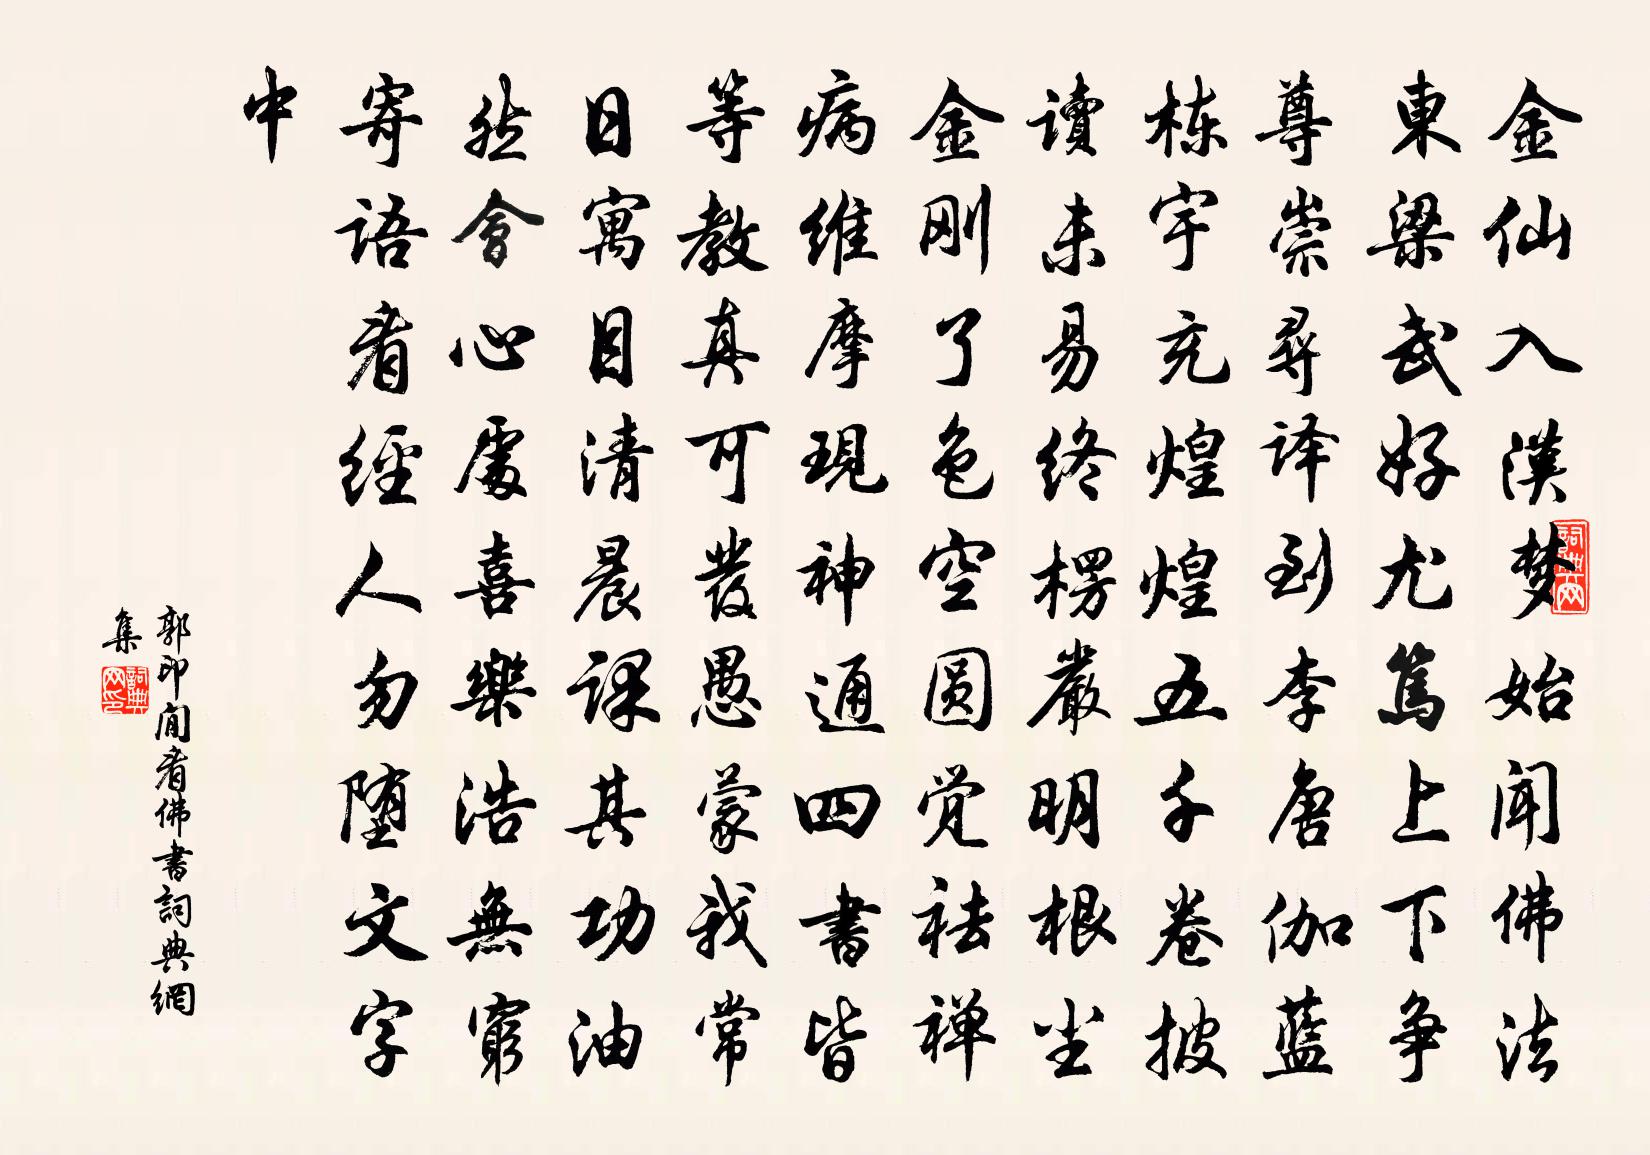 金仙入漢梦始闻佛法
東梁武好尤篤上下争
尊崇尋译到李唐伽藍
栋宇充煌煌五千卷披
讀未易终楞嚴明根尘
金刚了色空圆觉祛禅
病维摩現神通四書皆
等教真可發愚蒙我常
日寓目清晨课其功油
然會心處喜樂浩無窮
寄语看經人勿堕文字
中
郭印閒看佛書詞典網
集